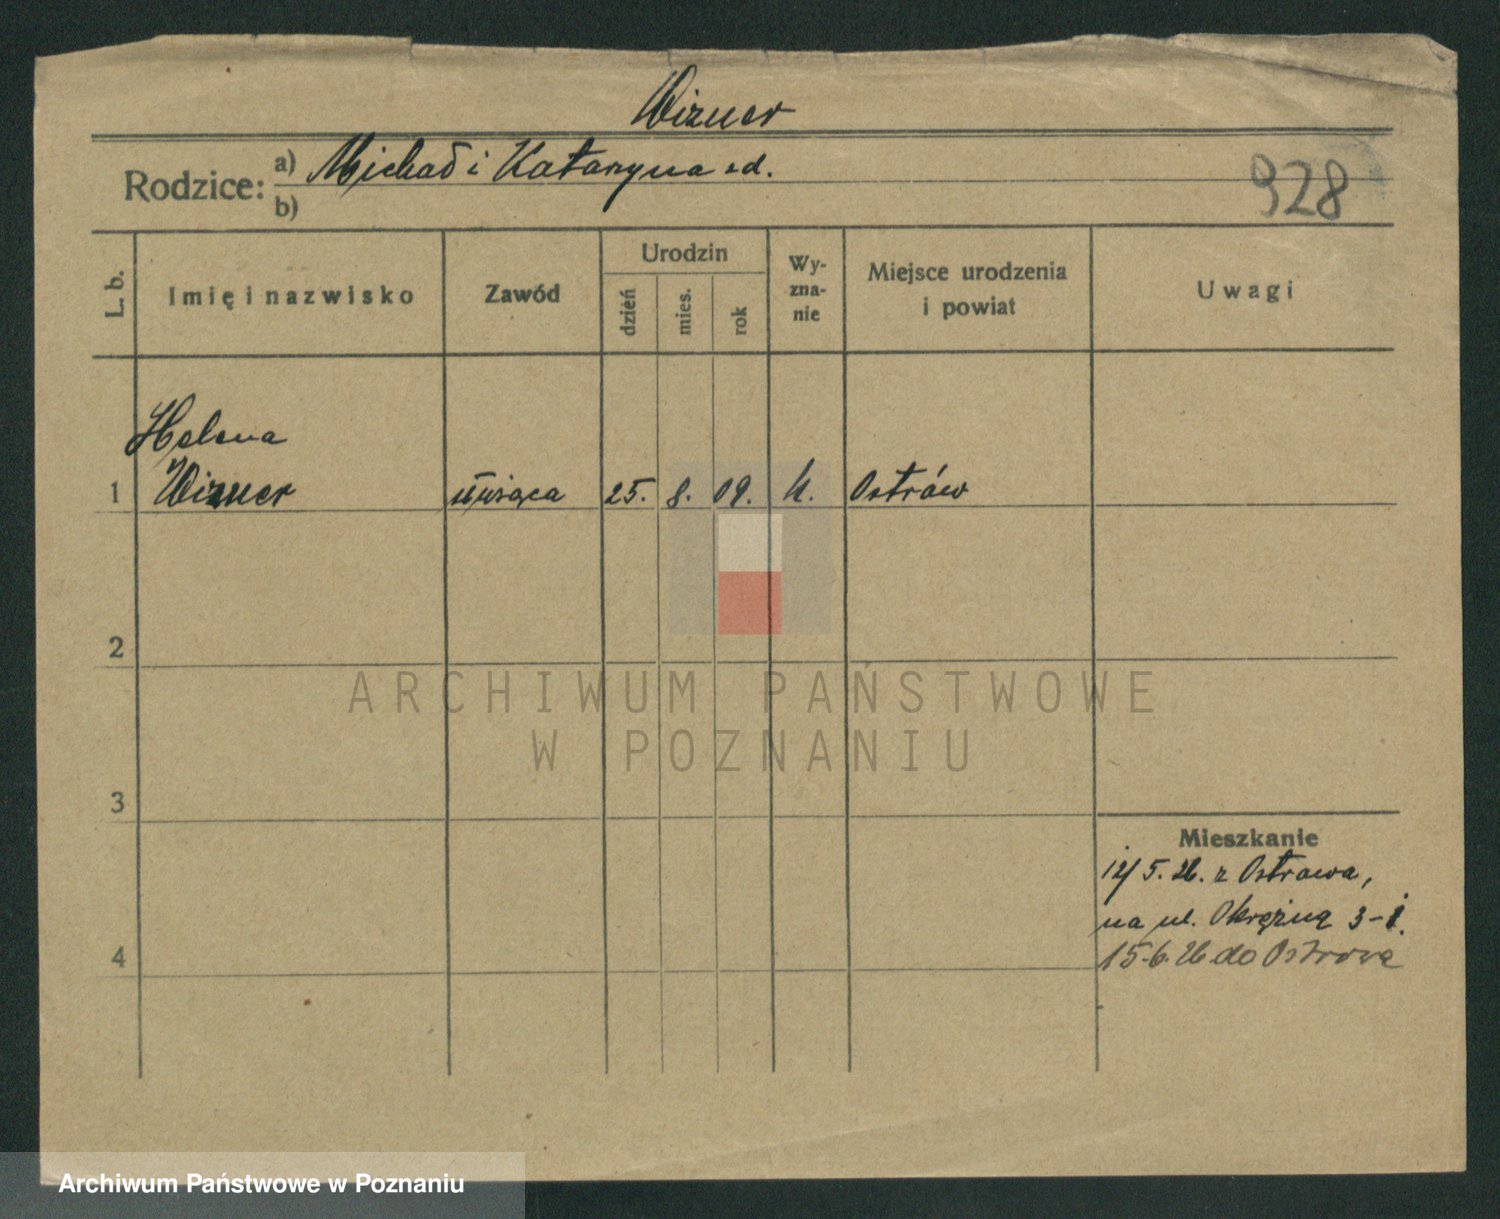 Wizner
Rodzice: a) Michał i Katarzyna
b)
928
L. b.
Imię i nazwisko
Zawód
Urodzin
dzień
mies.
rok
Wy-
zna-
nie
Miejsce urodzenia
i powiat
Uwagi
Helena
1 Wizner służąca 25. 8. 09. k. Ostrów
2
3
4
ARCHIWUM PAŃSTWOWE
W POZNANIU
Mieszkanie
12/5.26. z Ostrowa,
na ul. Okrężną 3-1.
15-6.26 do Ostrowa
Archiwum Państwowe w Poznaniu